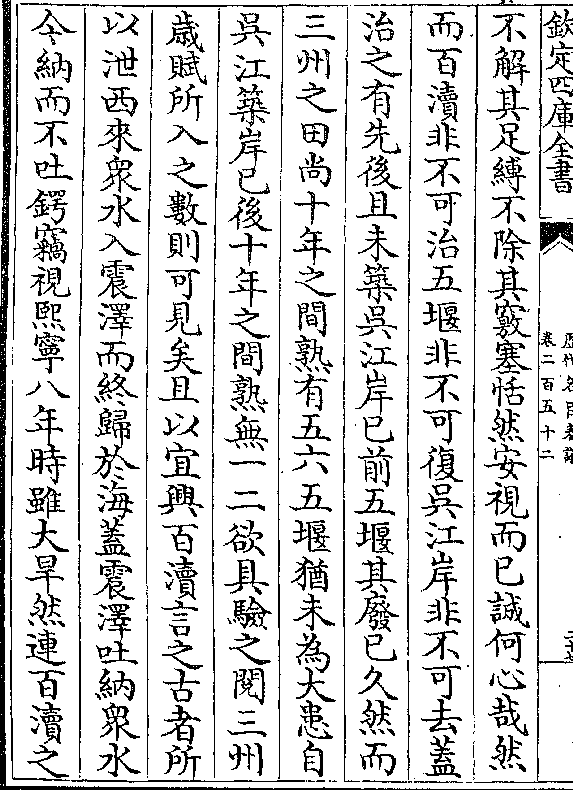 欽定四庫全書
卷二百五十二
不解其足縛不除其竅塞恬然安視而已誠何心哉然
而百瀆非不可治五堰非不可復吳江岸非不可去蓋
治之有先後且未築吳江岸已前五堰其廢已久然而
三州之田尚十年之間熟有五六五堰猶未為大患自
吳江築岸已後十年之間熟無一二欲具驗之閱三州
歲賦所入之數則可見矣且以宜興百瀆言之古者所
以泄西來衆水入震澤而終歸於海蓋震澤吐納衆水
今納而不吐鍔竊視熙寧八年時雖大旱然連百瀆之